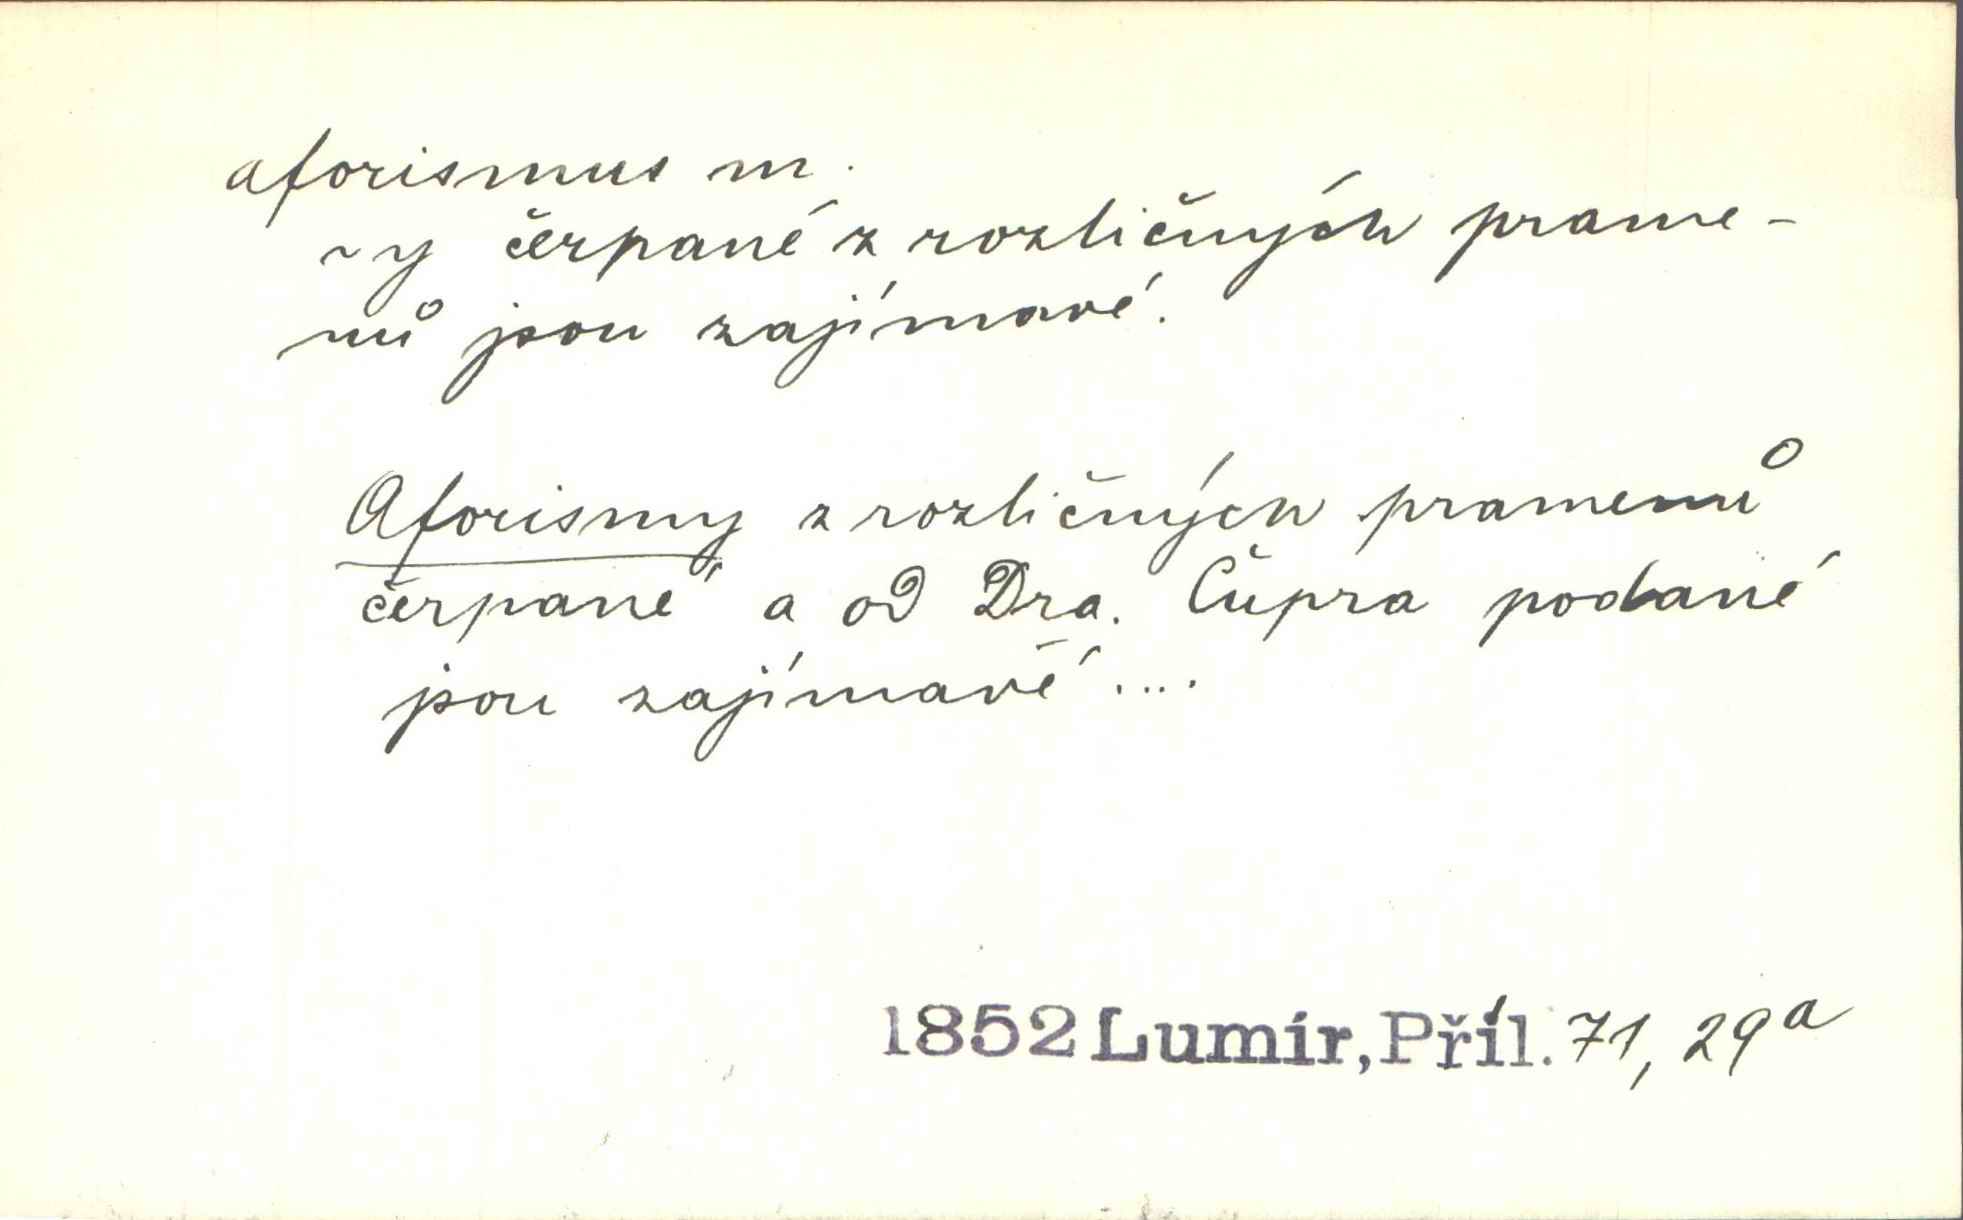 aforismus m.
~y čerpané z rozličných prame-
nů jsou zajímavé.
Aforismy z rozličných pramenů
čerpané a od Dra. Čupra podané
jsou zajímavé....
1852 Lumír, Příl. 71, 29a